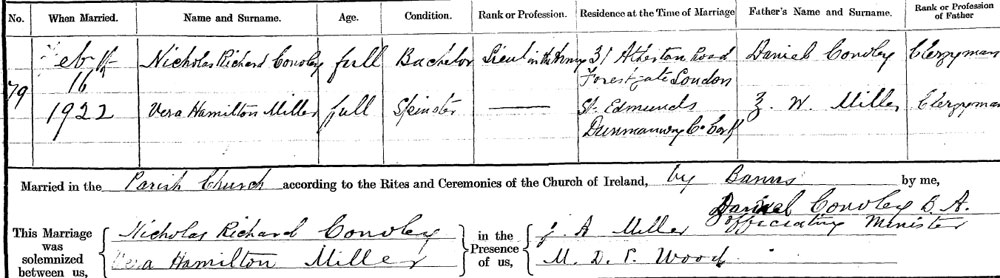 No. When Married. Name and Surname. Age. Condition. Rank or Profession. Residence at the Time of Marriage Father's Name and Surname. Rank or Profession of Father
79
Feb 16 1922
Nicholas Richard Conoley full Bachelor Lieut in the Army 31 Atherton Road Forest gate London Daniel Conoley Clergyman
Vera Hamilton Miller full Spinster St. Edmunds Dunmanway Co. Cork W. Miller Clergyman
Married in the Parish Church according to the Rites and Ceremonies of the Church of Ireland, by Banns by me,
Daniel Conoley B. A.
Officiating Minister
This Marriage was solemnized between us,
Nicholas Richard Conoley
Vera Hamilton Miller
in the Presence of us,
A Miller
M. D. Wood